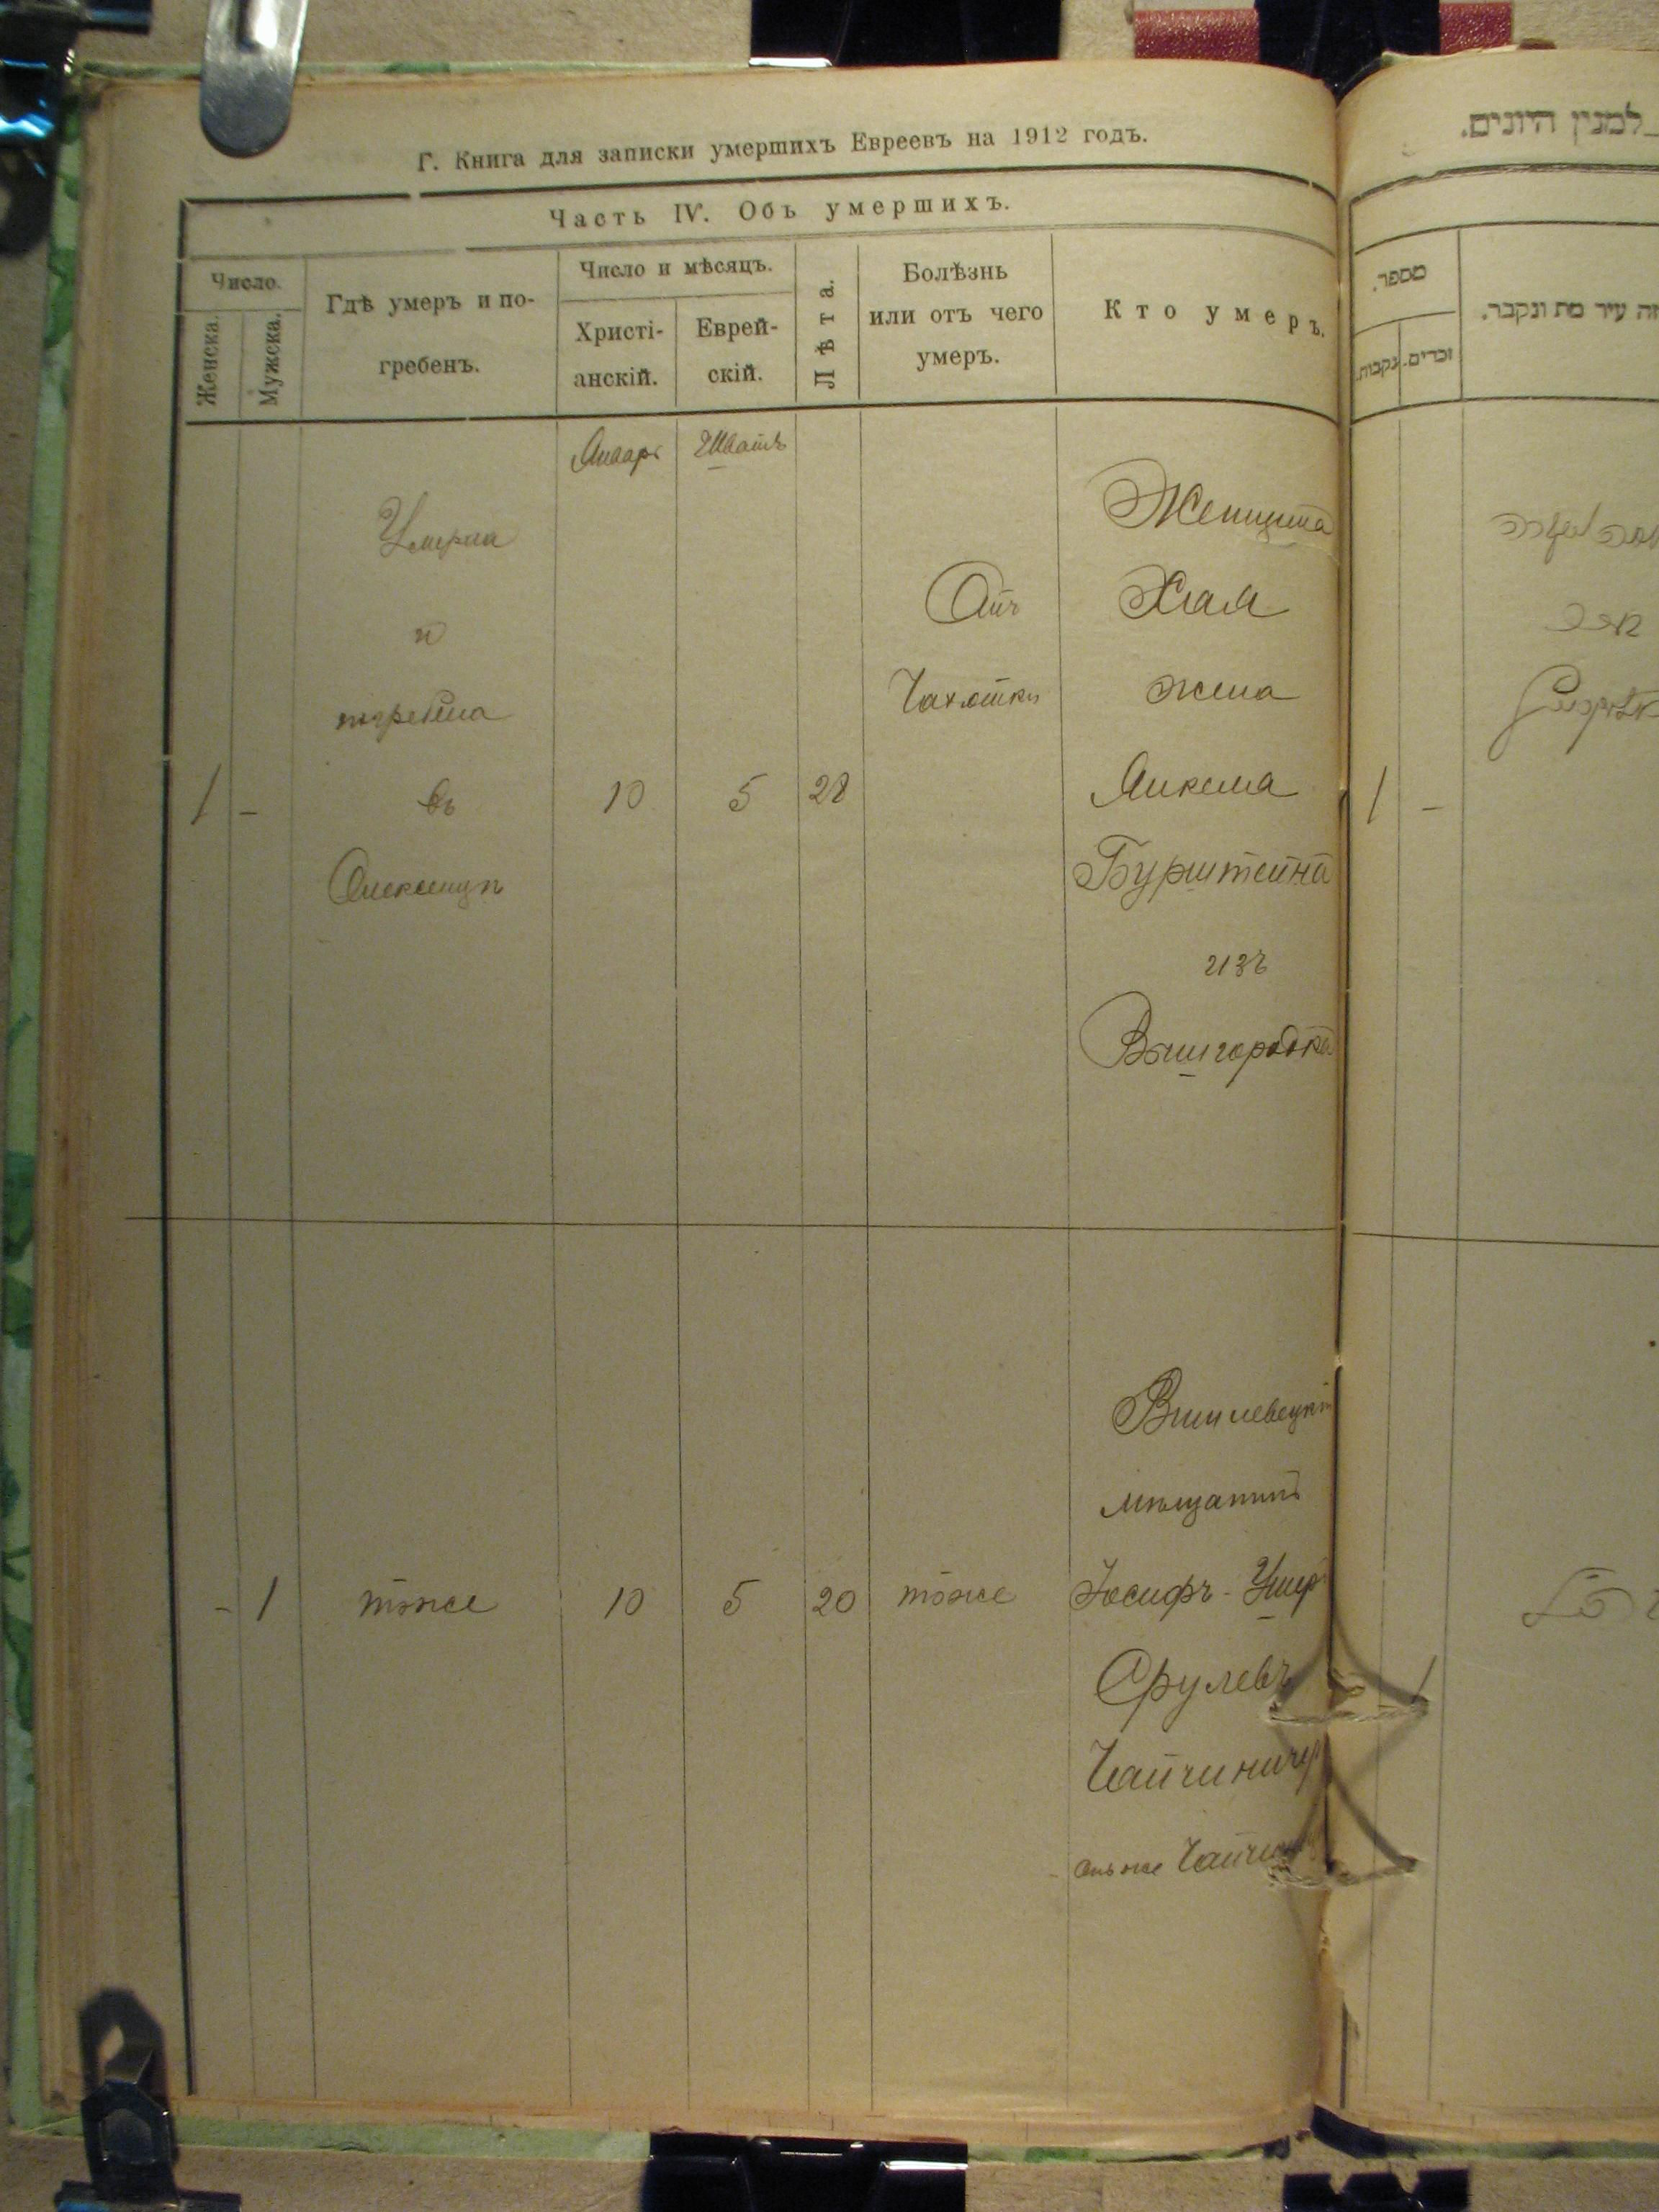 Г. Книга для записки умершихъ Евреевъ на 1912 годъ.
Часть IV. Объ умершихъ.
Число.
Женска.
Мужска.
Гдѣ умеръ и по-
гребенъ.
Число и мѣсяцъ.
Христі-
анскій.
Еврей-
скій.
Лѣта.
Болѣзнь
или отъ чего
умеръ.
Кто умеръ.
Январь
Шватъ
1
-
Умерла
и
погребена
въ
Олексинцѣ
10
5
28
Отъ
Чахотки
Женщина
Хая
жена
Янкеля
Бурштейна
изъ
Вышгородка
-
1
тоже
10
5
20
тоже
Вишневецкій
мѣщанинъ
Іосифъ-Ушер
Срулевъ
Чайчинич
онъ же
למנין היונים.
מספר.
נקבות.
זכרים.
זה עיר מת ונקבר.
1
-
1